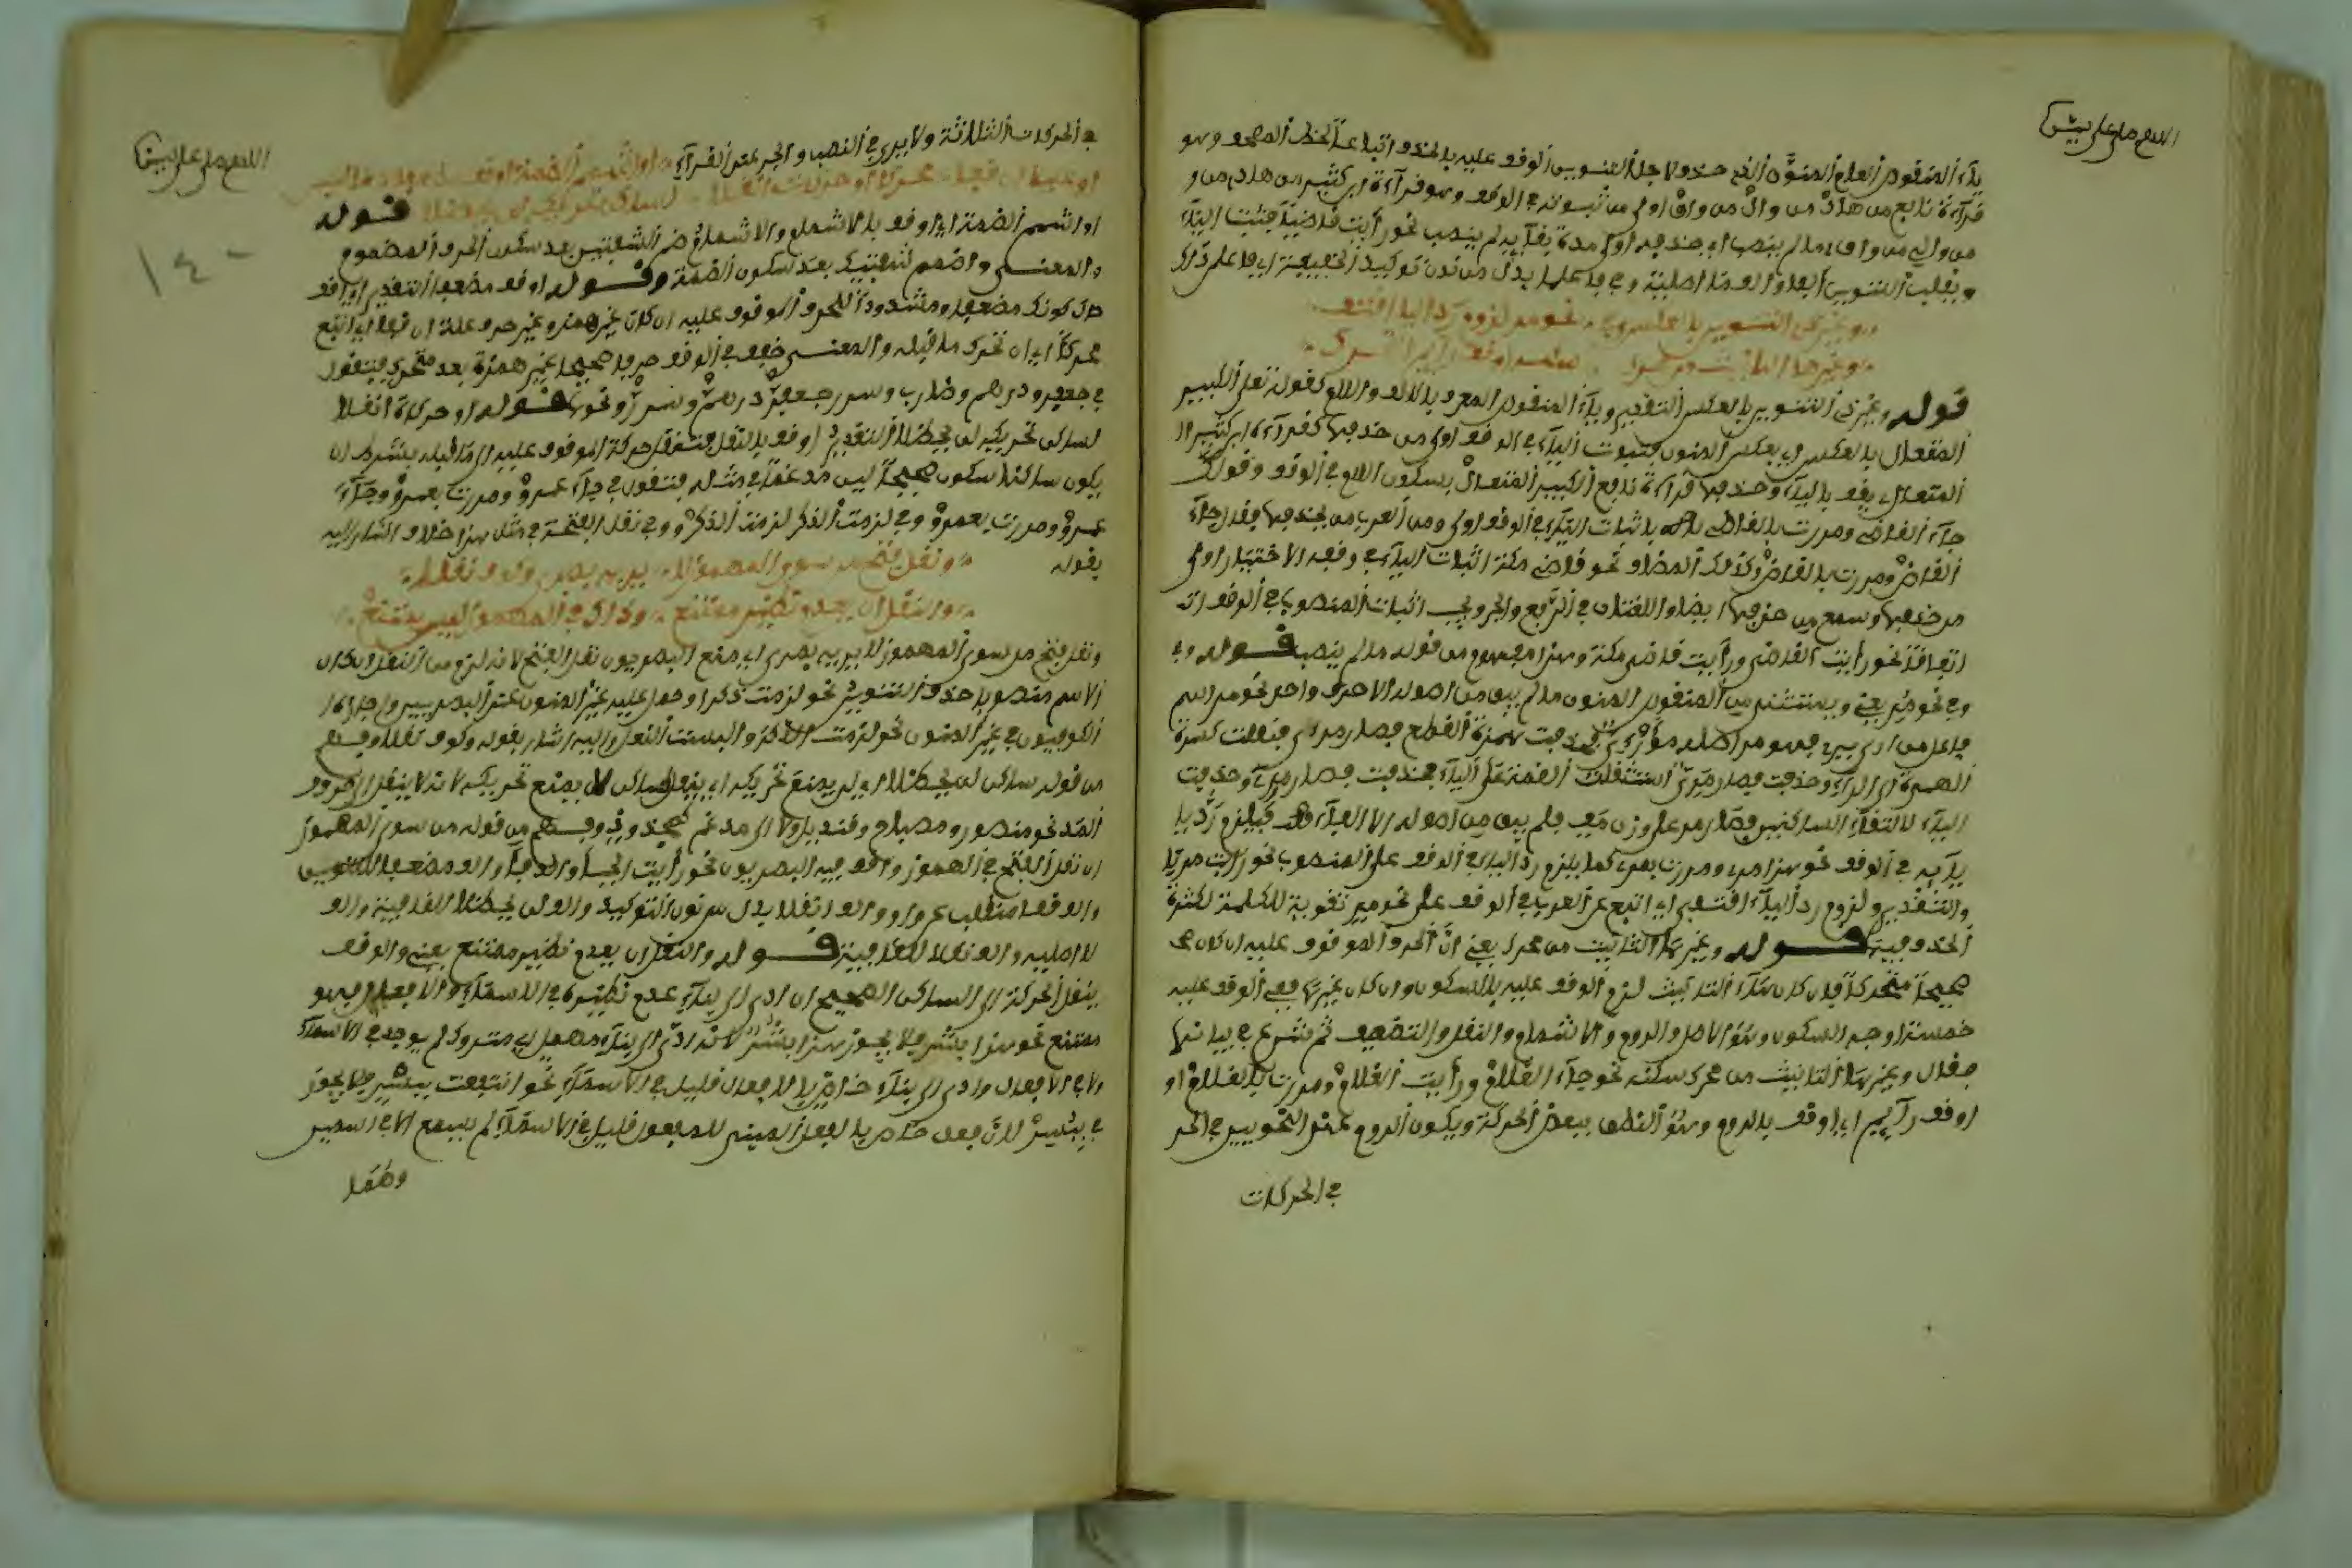 ياء المنقوص العلم المنون الذي حذف لاجل التنوين الوقف عليه بالحذف اتباعا لخط المصحف وهو
قراءة نافع من هاد من وال من واق اولى من ثبوته في الوقف وهو قراءة ابن كثير من هادي من و
من والي من واقي ما لم ينصب اي حذفه اولى مدة بقائه لم ينصب نحو رايت قاضيا فثبت الياء
وتقلب التنوين الفا
وغير ذي التنوين بالعكس وفي نحو مر لزوم رد اليا اقتفي
وغيرها التانيث من محرك سكنه او قف رائم التحرك
قوله وغير ذي التنوين بالعكس التقدير وياء المنقوص المعرف بالالف واللام كقوله تعلى الكبير
المتعال بالعكس اي بعكس المنون فثبوت الياء في الوقف اولى من حذفها كقراءة ابن كثير
المتعالي يقف بالياء وحذفها قراءة نافع الكبير المتعال بسكون اللام في الوقف وقولك
جاء القاضي ومررت بالقاضي باثبات الياء في الوقف اولى ومن العرب من يحذفها فقد جاء
القاض ومررت بالقاض وكذلك المضاف نحو قاضي مكة اثبات الياء في وقفه الاختيار اولى
من حذفها وسمع من حذفها ايضا واللغتان في الرفع والجر ويجب اثبات المنصوب في الوقف
اتفاقا نحو رايت القاضي ورايت قاضي مكة وهذا مفهوم من قوله ما لم ينصب قوله وفي
وفي نحو مر يعني ويستثنى من المنقوص المنون ما لم يبق من اصوله الا حرف واحد نحو مر اسم
فاعل من ارى يري فهو مر اصله مرئي حذفت همزة القطع فصار مرئي فنقلت كسرة
الهمزة الى الراء وحذفت فصار مري استثقلت الضمة على الياء فحذفت فصار مر وحذفت
الياء لالتقاء الساكنين فصار مر على وزن مف فلم يبق من اصوله الا الفاء فيلزم رد يا
يائه في الوقف نحو هذا مري ومررت بمري كما يلزم رد الياء في الوقف على المنصوب نحو رايت مريا
والتقدير ولزوم رد الياء اقتفي اي اتبع عن العرب في الوقف على نحو مر تقوية للكلمة لكثرة
الحذف فيها قوله وغيرها التانيث من محرك يعني ان الحرف الموقوف عليه ان كان
صحيحا متحركا فان كان هاء التانيث لزم الوقف عليه بالسكون وان كان غيرها ففي الوقف عليه
خمسة اوجه السكون وهو الاصل والروم والاشمام والنقل والتضعيف ثم شرع في بيانها
فقال وغيرها التانيث من محرك سكنه نحو جاء الغلام ورايت الغلام ومررت بالغلام او
او قف رائم اي اوقف بالروم وهو النطق ببعض الحركة ويكون الروم عند النحويين في الحر
في الحركات
اللهم صل على نبينا
في الحركات الثلاثة ولا يرى في النصب والجر عند القراء او اشمم الضمة او قف مضعفا ما ليس
او عليلا ان قفا محركا وحركات انقلا لساكن تحريكه لن يحظلا قوله
او اشمم الضمة اي او قف بالاشمام والاشمام ضم الشفتين بعد سكون الحرف المضموم
والمعنى واضمم شفتيك بعد سكون الضمة وقوله او قف مضعفا التقدير او قف
حال كونك مضعفا ومشددا للحرف الموقوف عليه ان كان غير همز وغير حرف علة ان قفا اي اتبع
محركا اي ان تحرك ما قبله والمعنى ضعف في الوقف حرفا صحيحا غير همزة بعد متحرك فتقول
في جعفر ودرهم وضارب وسرر جعفر ودرهم وسرر ونحوها قوله او حركات انقلا
لساكن تحريكه لن يحظلا التقدير او قف بالنقل فتنقل حركة الموقوف عليه الى ما قبله بشرط ان
يكون ساكنا سكون صحيحا ليس مدغما في مثله فتقول في جاء عمرو ومررت بعمرو وجاء
عمرو ومررت بعمرو وفي لزمت الذكر لزمت الذكر وفي نقل الفتحة في مثل هذا خلاف اشار اليه
بقوله ونقل فتح من سوى المهموز لا يريه بصري وكوف نقلا
والنقل ان يعدم نظير ممتنع وذاك في المهموز ليس يمتنع
ونقل فتح من سوى المهموز لا يريه بصري اي منع البصريون نقل الفتح لانه لزم من النقل ان كان
الاسم منصوبا حذف التنوين نحو لزمت ذكرا وحمل عليه غير المنون عند البصريين واجازه
الكوفيون في غير المنون نحو لزمت الذكر والبست النعل واليه اشار بقوله وكوف نقلا وفهم
من قوله ساكن لن يحظلا اي لن يمنع تحريكه اي ينقل لساكن لا يمتنع تحريكه لانه لا ينقل الى حروف
المد نحو منصور ومصباح وقنديل ولا الى مدغم وفهم من قوله من سوى المهموز
ان نقل الفتح في المهموز وافق فيه البصريون نحو رايت الخبا والدفا والف مضعفا للتنوين
والف قفا منقلب عن واو والف انقلا بدل من نون التوكيد والف لن يحظلا للقافية والف
لا اصلية والف نقلا للقافية قوله والنقل ان يعدم نظير ممتنع يعني والوقف
بنقل الحركة الى الساكن الصحيح ان ادى الى بناء عدم نظيره في الاسماء والافعال فهو
ممتنع نحو هذا بشر فلا يجوز هذا بشر لانه ادى الى بناء مهمل اي متروك لم يوجد في الاسماء
ولا في الافعال وادى الى بناء خاص بالافعال قليل في الاسماء نحو انتفعت ببشر فلا يجوز
في بشر لان فعل خاص بالفعل المبني للمفعول قليل في الاسماء لم يسمع الا في اسمين
وهما
اللهم صل على نبينا
١٤٠